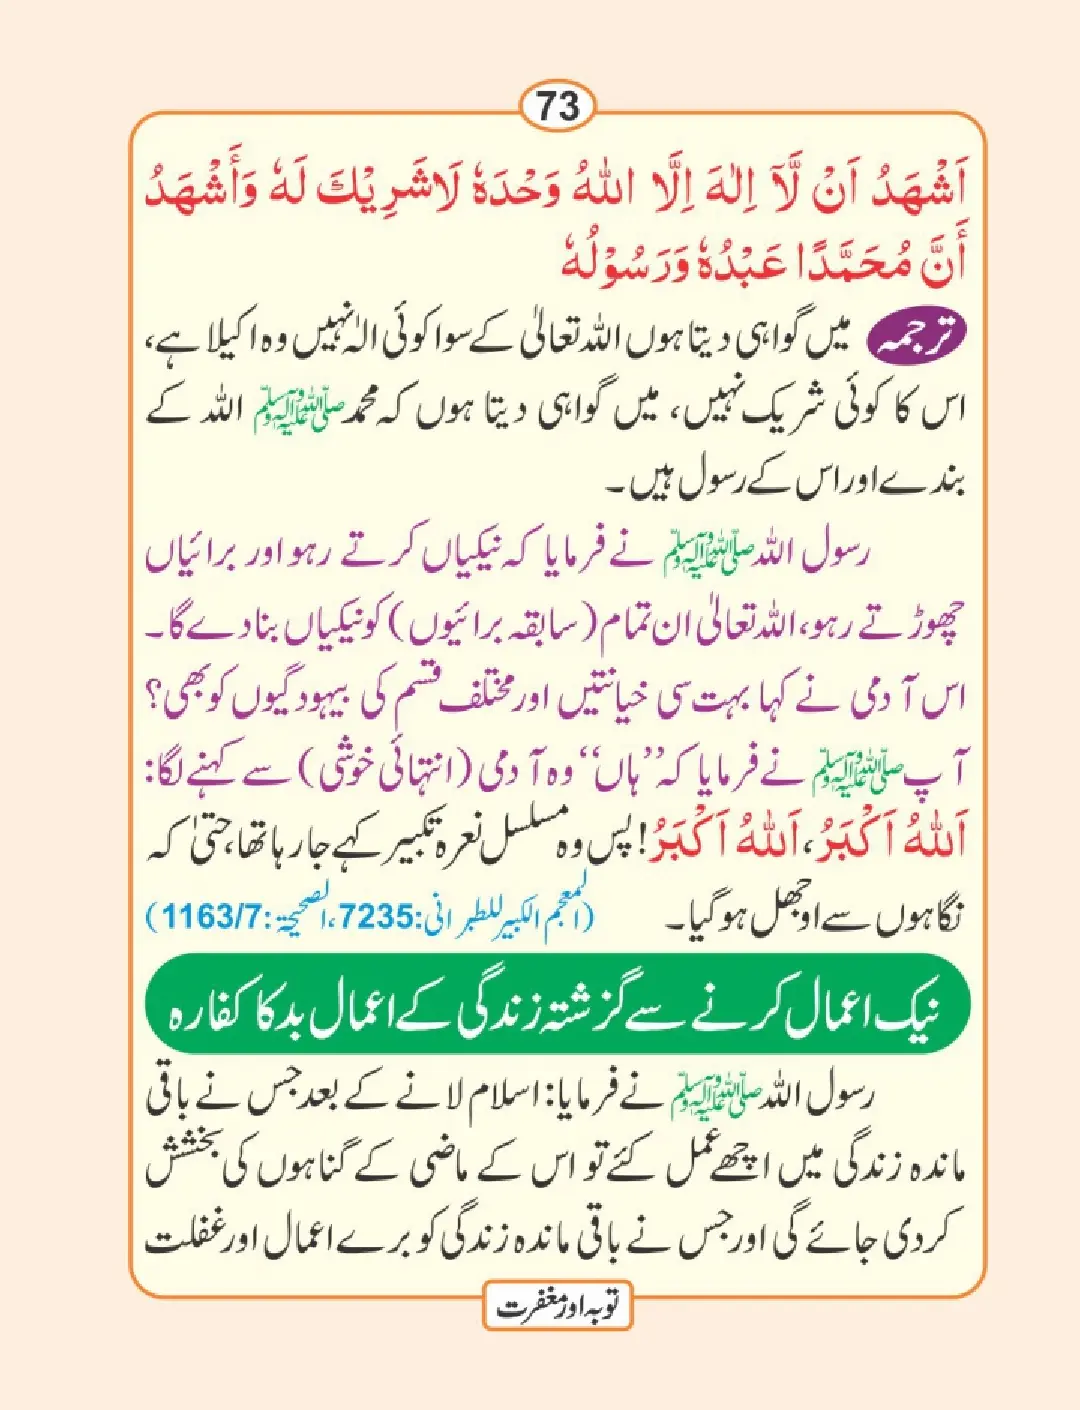 73
اَشْهَدُ اَنْ لَّآ اِلٰهَ اِلَّا اللهُ وَحْدَهٗ لَاشَرِيْكَ لَهٗ وَأَشْهَدُ
أَنَّ مُحَمَّدًا عَبْدُهٗ وَرَسُوْلُهٗ
ترجمہ میں گواہی دیتا ہوں اللہ تعالیٰ کے سوا کوئی الٰہ نہیں وہ اکیلا ہے،
اس کا کوئی شریک نہیں، میں گواہی دیتا ہوں کہ محمد ﷺ اللہ کے
بندے اور اس کے رسول ہیں۔
رسول اللہ ﷺ نے فرمایا کہ نیکیاں کرتے رہو اور برائیاں
چھوڑتے رہو، اللہ تعالیٰ ان تمام (سابقہ برائیوں) کو نیکیاں بنا دے گا۔
اس آدمی نے کہا بہت سی خیانتیں اور مختلف قسم کی بیہودگیوں کو بھی؟
آپ ﷺ نے فرمایا کہ ”ہاں“ وہ آدمی (انتہائی خوشی) سے کہنے لگا:
اَللهُ اَكْبَرُ، اَللهُ اَكْبَرُ! پس وہ مسلسل نعرہ تکبیر کہے جا رہا تھا، حتیٰ کہ
نگاہوں سے اوجھل ہو گیا۔ (المعجم الکبیر للطبرانی: 7235، الصحیحۃ: 1163/7)
نیک اعمال کرنے سے گزشتہ زندگی کے اعمال بد کا کفارہ
رسول اللہ ﷺ نے فرمایا: اسلام لانے کے بعد جس نے باقی
ماندہ زندگی میں اچھے عمل کئے تو اس کے ماضی کے گناہوں کی بخشش
کر دی جائے گی اور جس نے باقی ماندہ زندگی کو برے اعمال اور غفلت
توبہ اور مغفرت